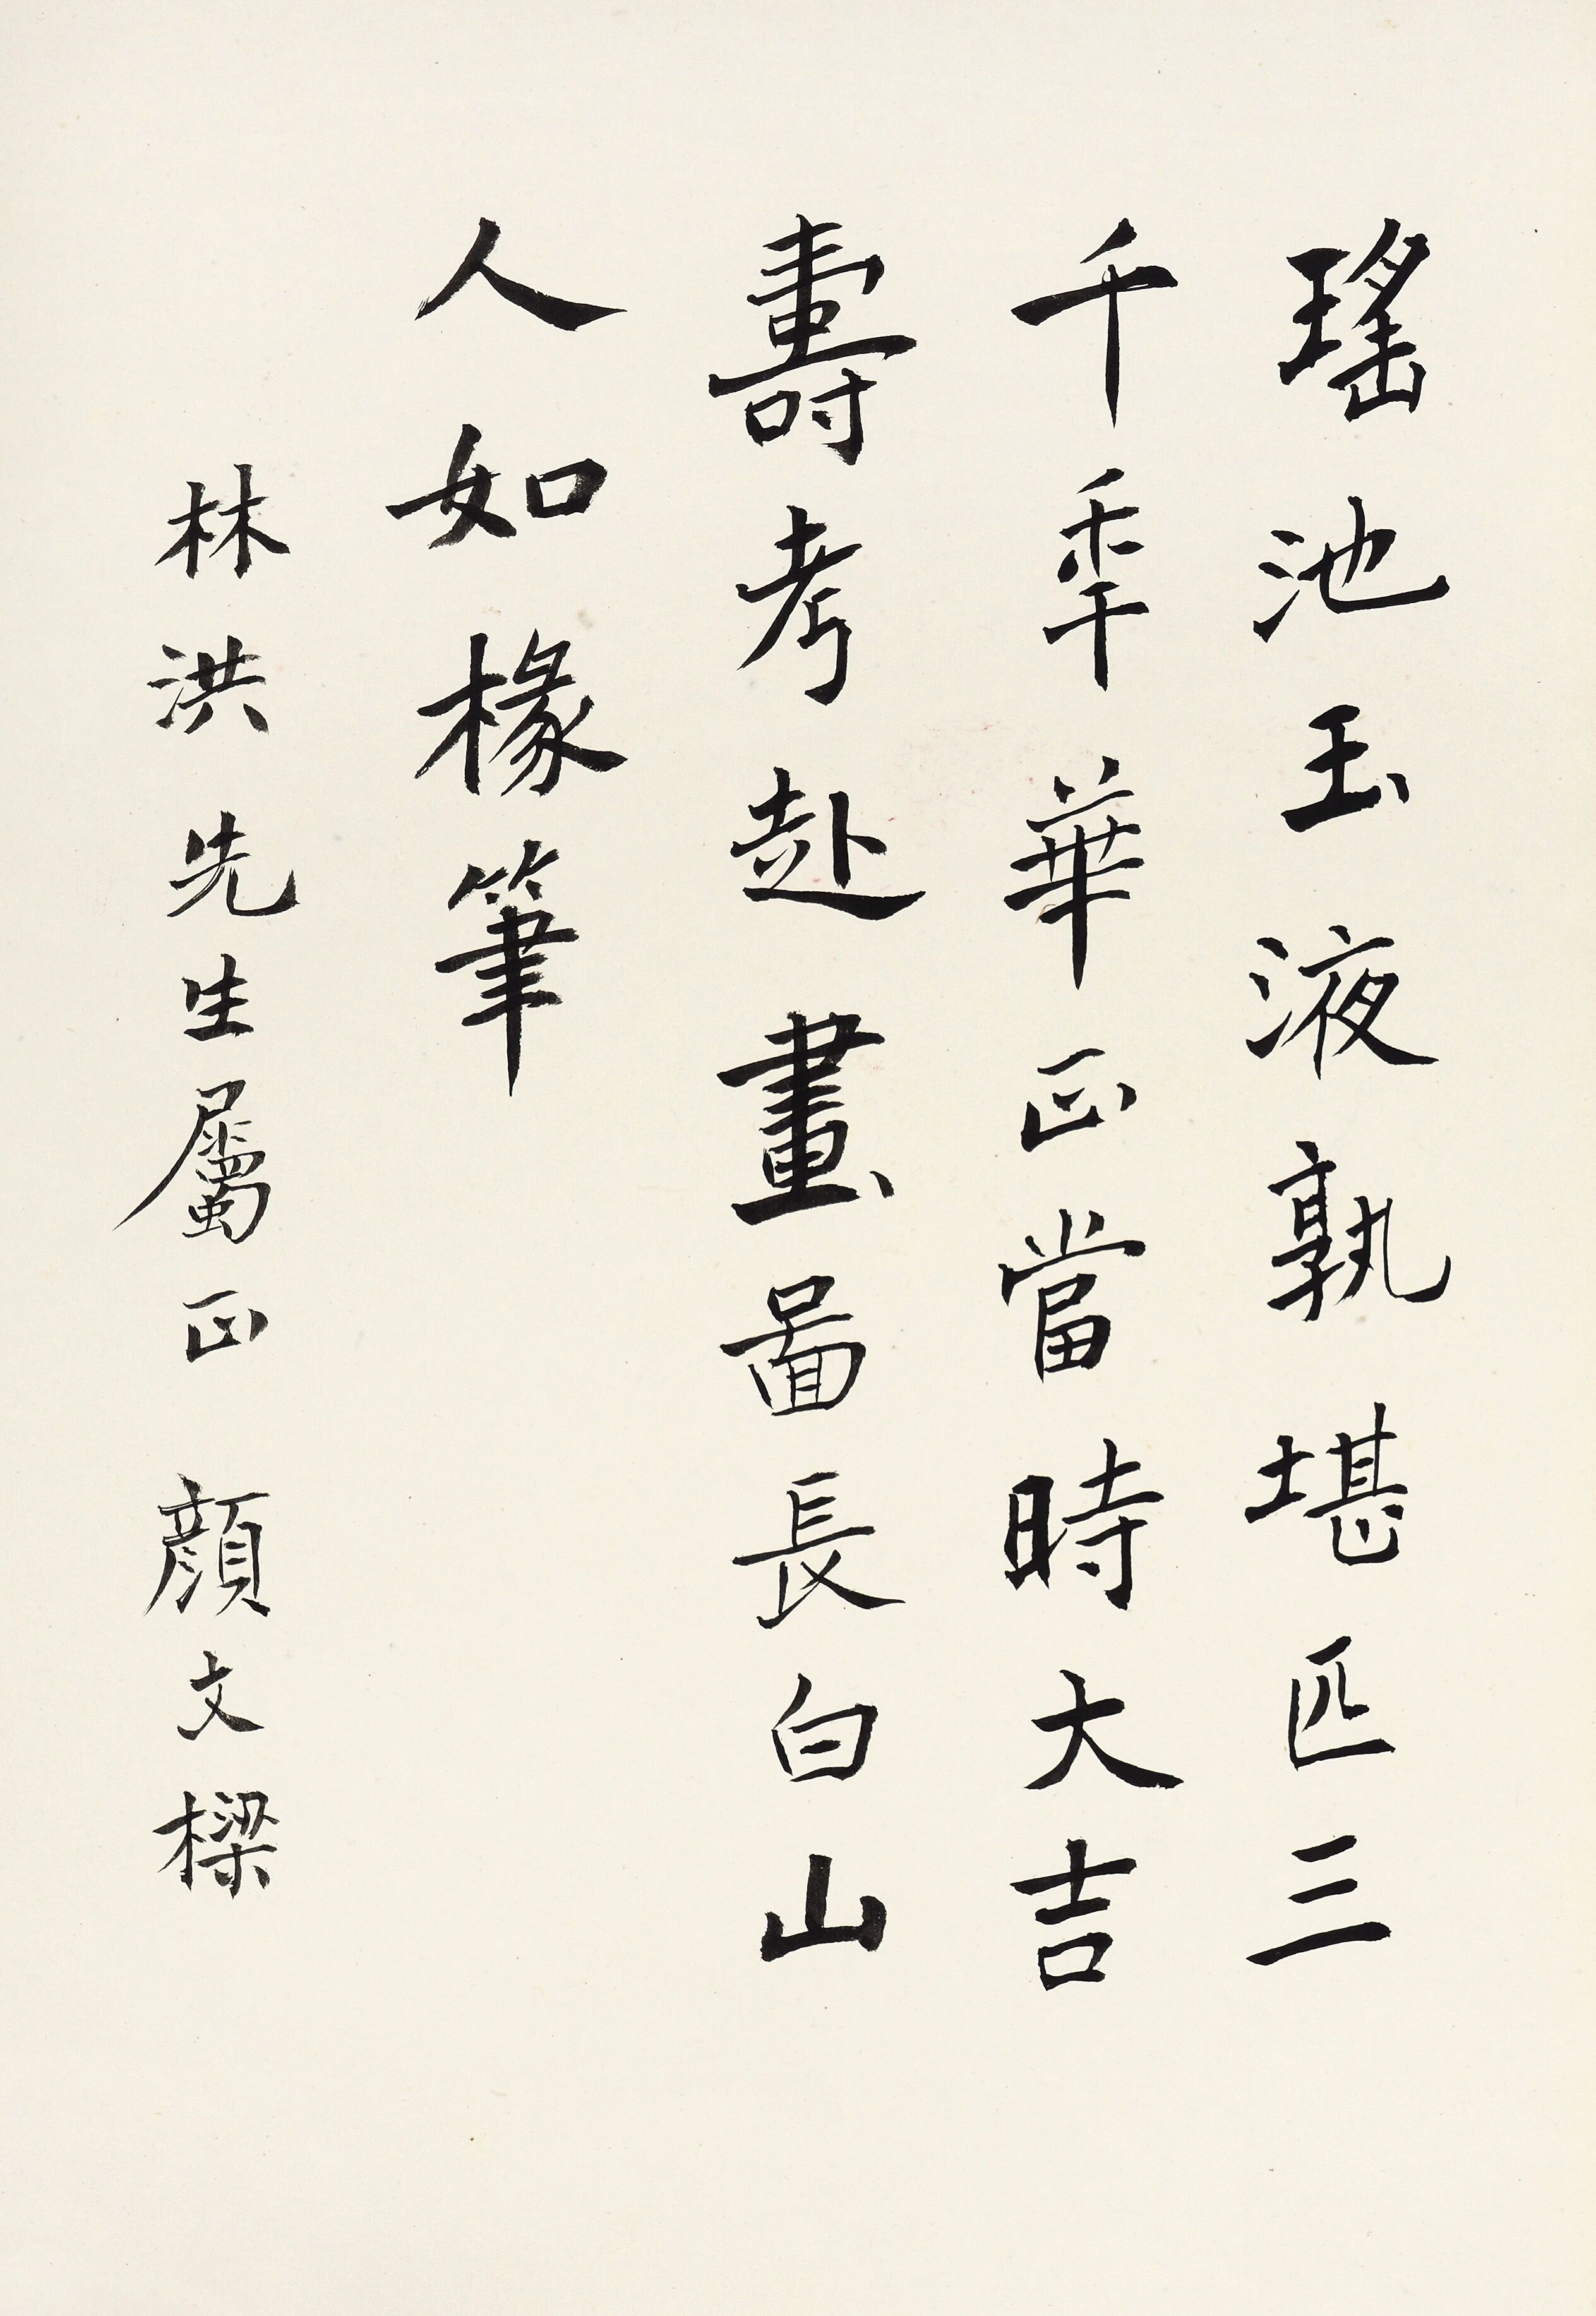 瑤池玉液孰堪匹三
千秊華正當時大吉
壽考赴畫啚長白山
人如椽筆
林洪先生屬正 顏文樑